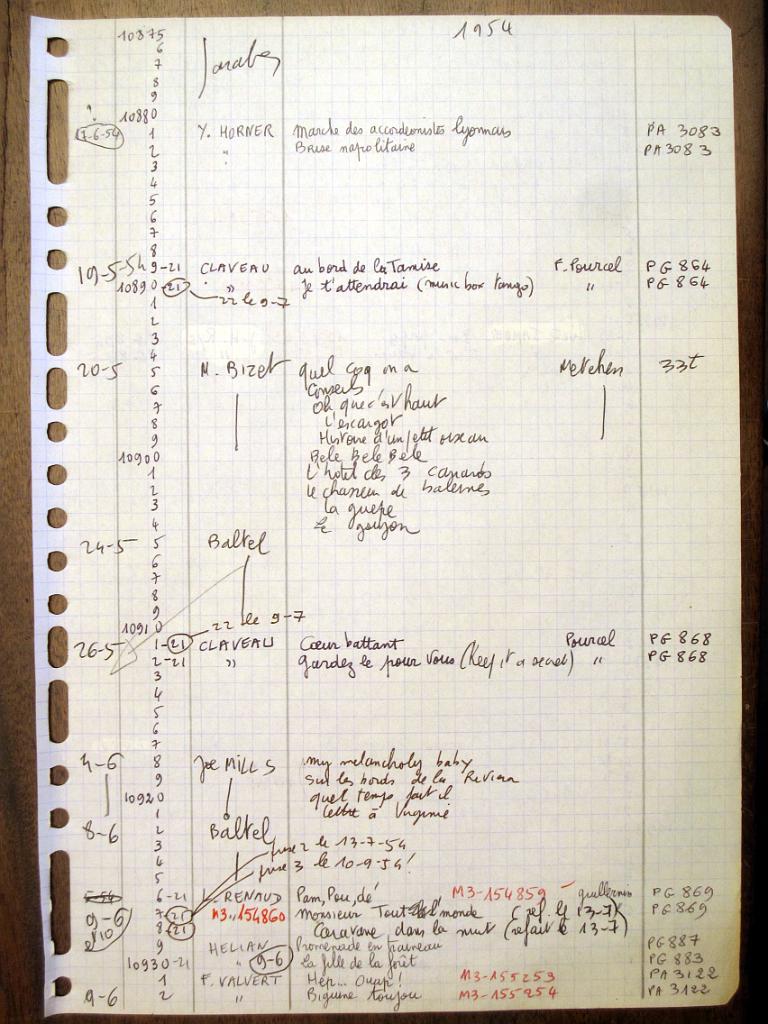 1954
10875
6
7
8
9
10880
?
7-6-54 1 Y. HORNER Marche des accordeonistes lyonnais PA 3083
2 " Brise napolitaine PA 3083
3
4
5
6
7
8
19-5-54 9-21 CLAVEAU au bord de la Tamise F. Pourcel PG 864
10890-21 " Je t'attendrai (music box tango) " PG 864
1 22 le 9-7
2
3
4
20-5 5 M. BIZET quel coq on a 33t
6 Conseils
7 Oh que c'est haut
8 L'escargot
9 Histoire d'un petit oiseau
10900 Bele Bele Bele
1 L'hotel des 3 canards
2 le chasseur de baleines
3 la guepe
4 le goujon
24-5 5 Baltel
6
7
8
9
10910 22 le 9-7
26-5 1-21 CLAVEAU Cœur battant Pourcel PG 868
2-21 " gardez le pour vous (Keep it a secret) " PG 868
3
4
5
6
7
4-6 8 Joe MILLS my melancholy baby
9 Sur les bords de la Riviera
10920 quel temps fait il
1 lettre à Virginie
8-6 2 Baltel
3 prise 2 le 13-7-54
4 prise 3 le 10-9-54!
5
6-21 L. RENAUD Pam, Pou, dé M3-154859 - guillermin PG 869
9-6 7-21 M3-154860 Monsieur Tout le monde (ref. le 13-7) PG 869
8-21 Caravane dans la nuit (refait le 13-7)
9 HELIAN Promenade en traineau PG 887
10930-21 " 9-6 La fille de la forêt PG 883
1 F. VALVERT Hep... Ouap! M3-155253 PA 3122
9-6 2 " Biguine toujou M3-155254 PA 3122